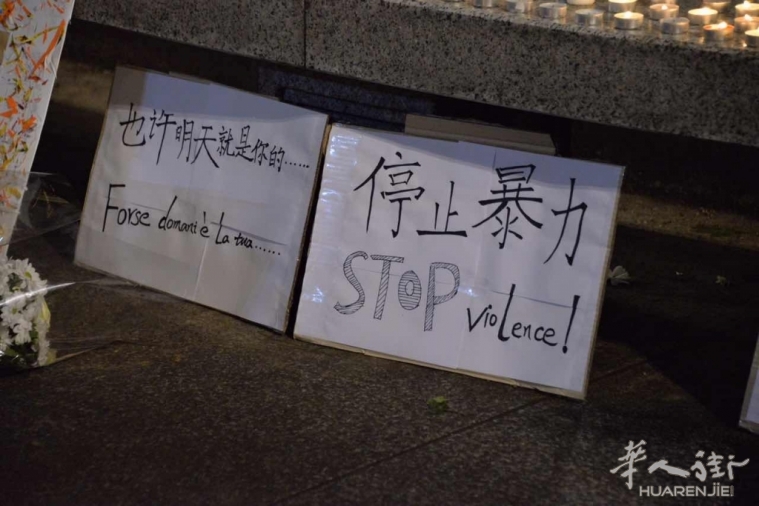 也许明天就是你的......
Forse domani è la tua......
停止暴力
STOP
violence!
華人街
HUARENJIE